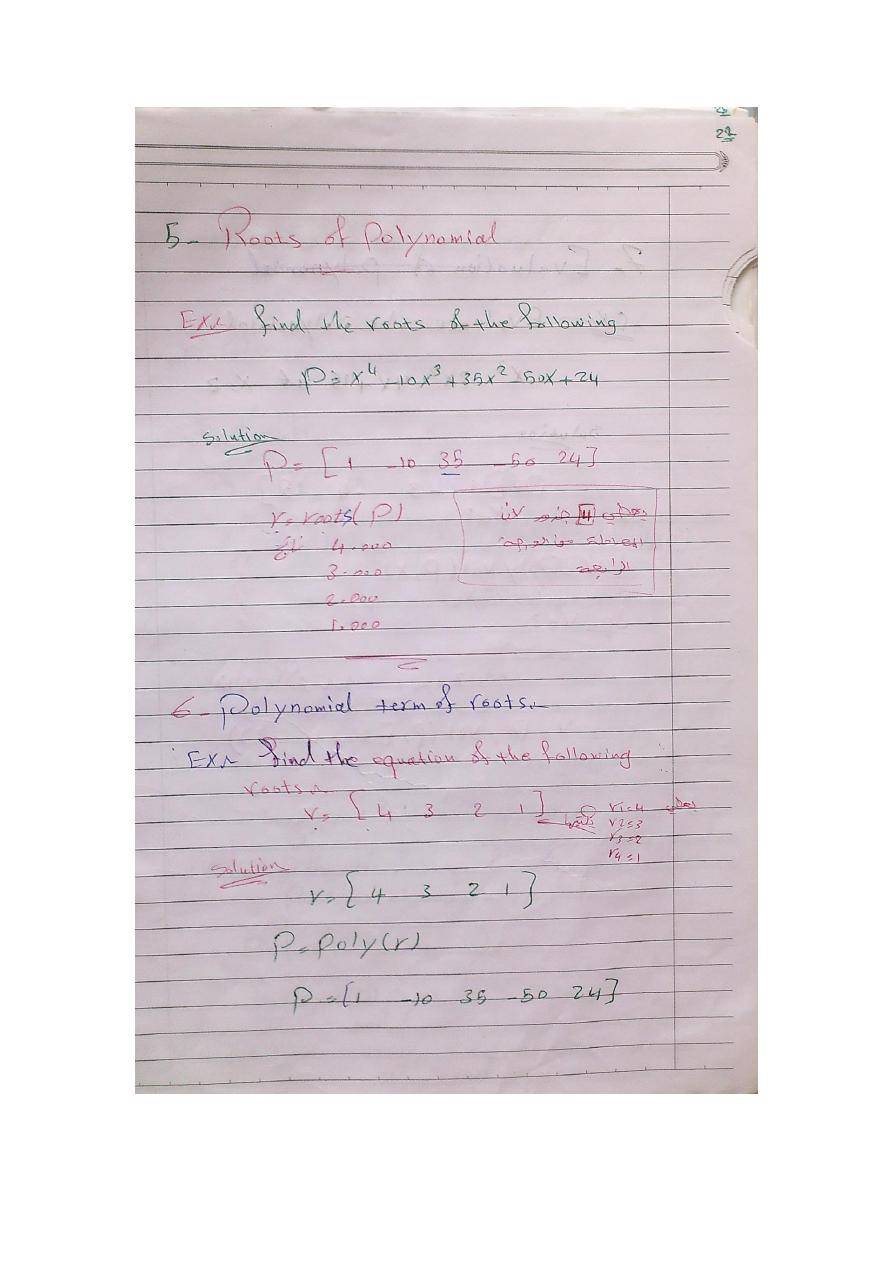 22
5- Roots of Polynomial
Ex: find the roots of the following
P = x^4 -10x^3 +35x^2 -50x+24
Solution
P= [1 -10 35 -50 24]
r= roots(P)
يعطي 4 جذور لأن
ناتج 4.000
المعادلة من الدرجة
3.000
الرابعة
2.000
1.000
6- Polynomial term of roots:
Ex: find the equation of the following
roots:
r= [4 3 2 1]
r1=4 يعطي
r2=3
r3=2
r4=1
Solution
r= [4 3 2 1]
P=poly(r)
P=[1 -10 35 -50 24]